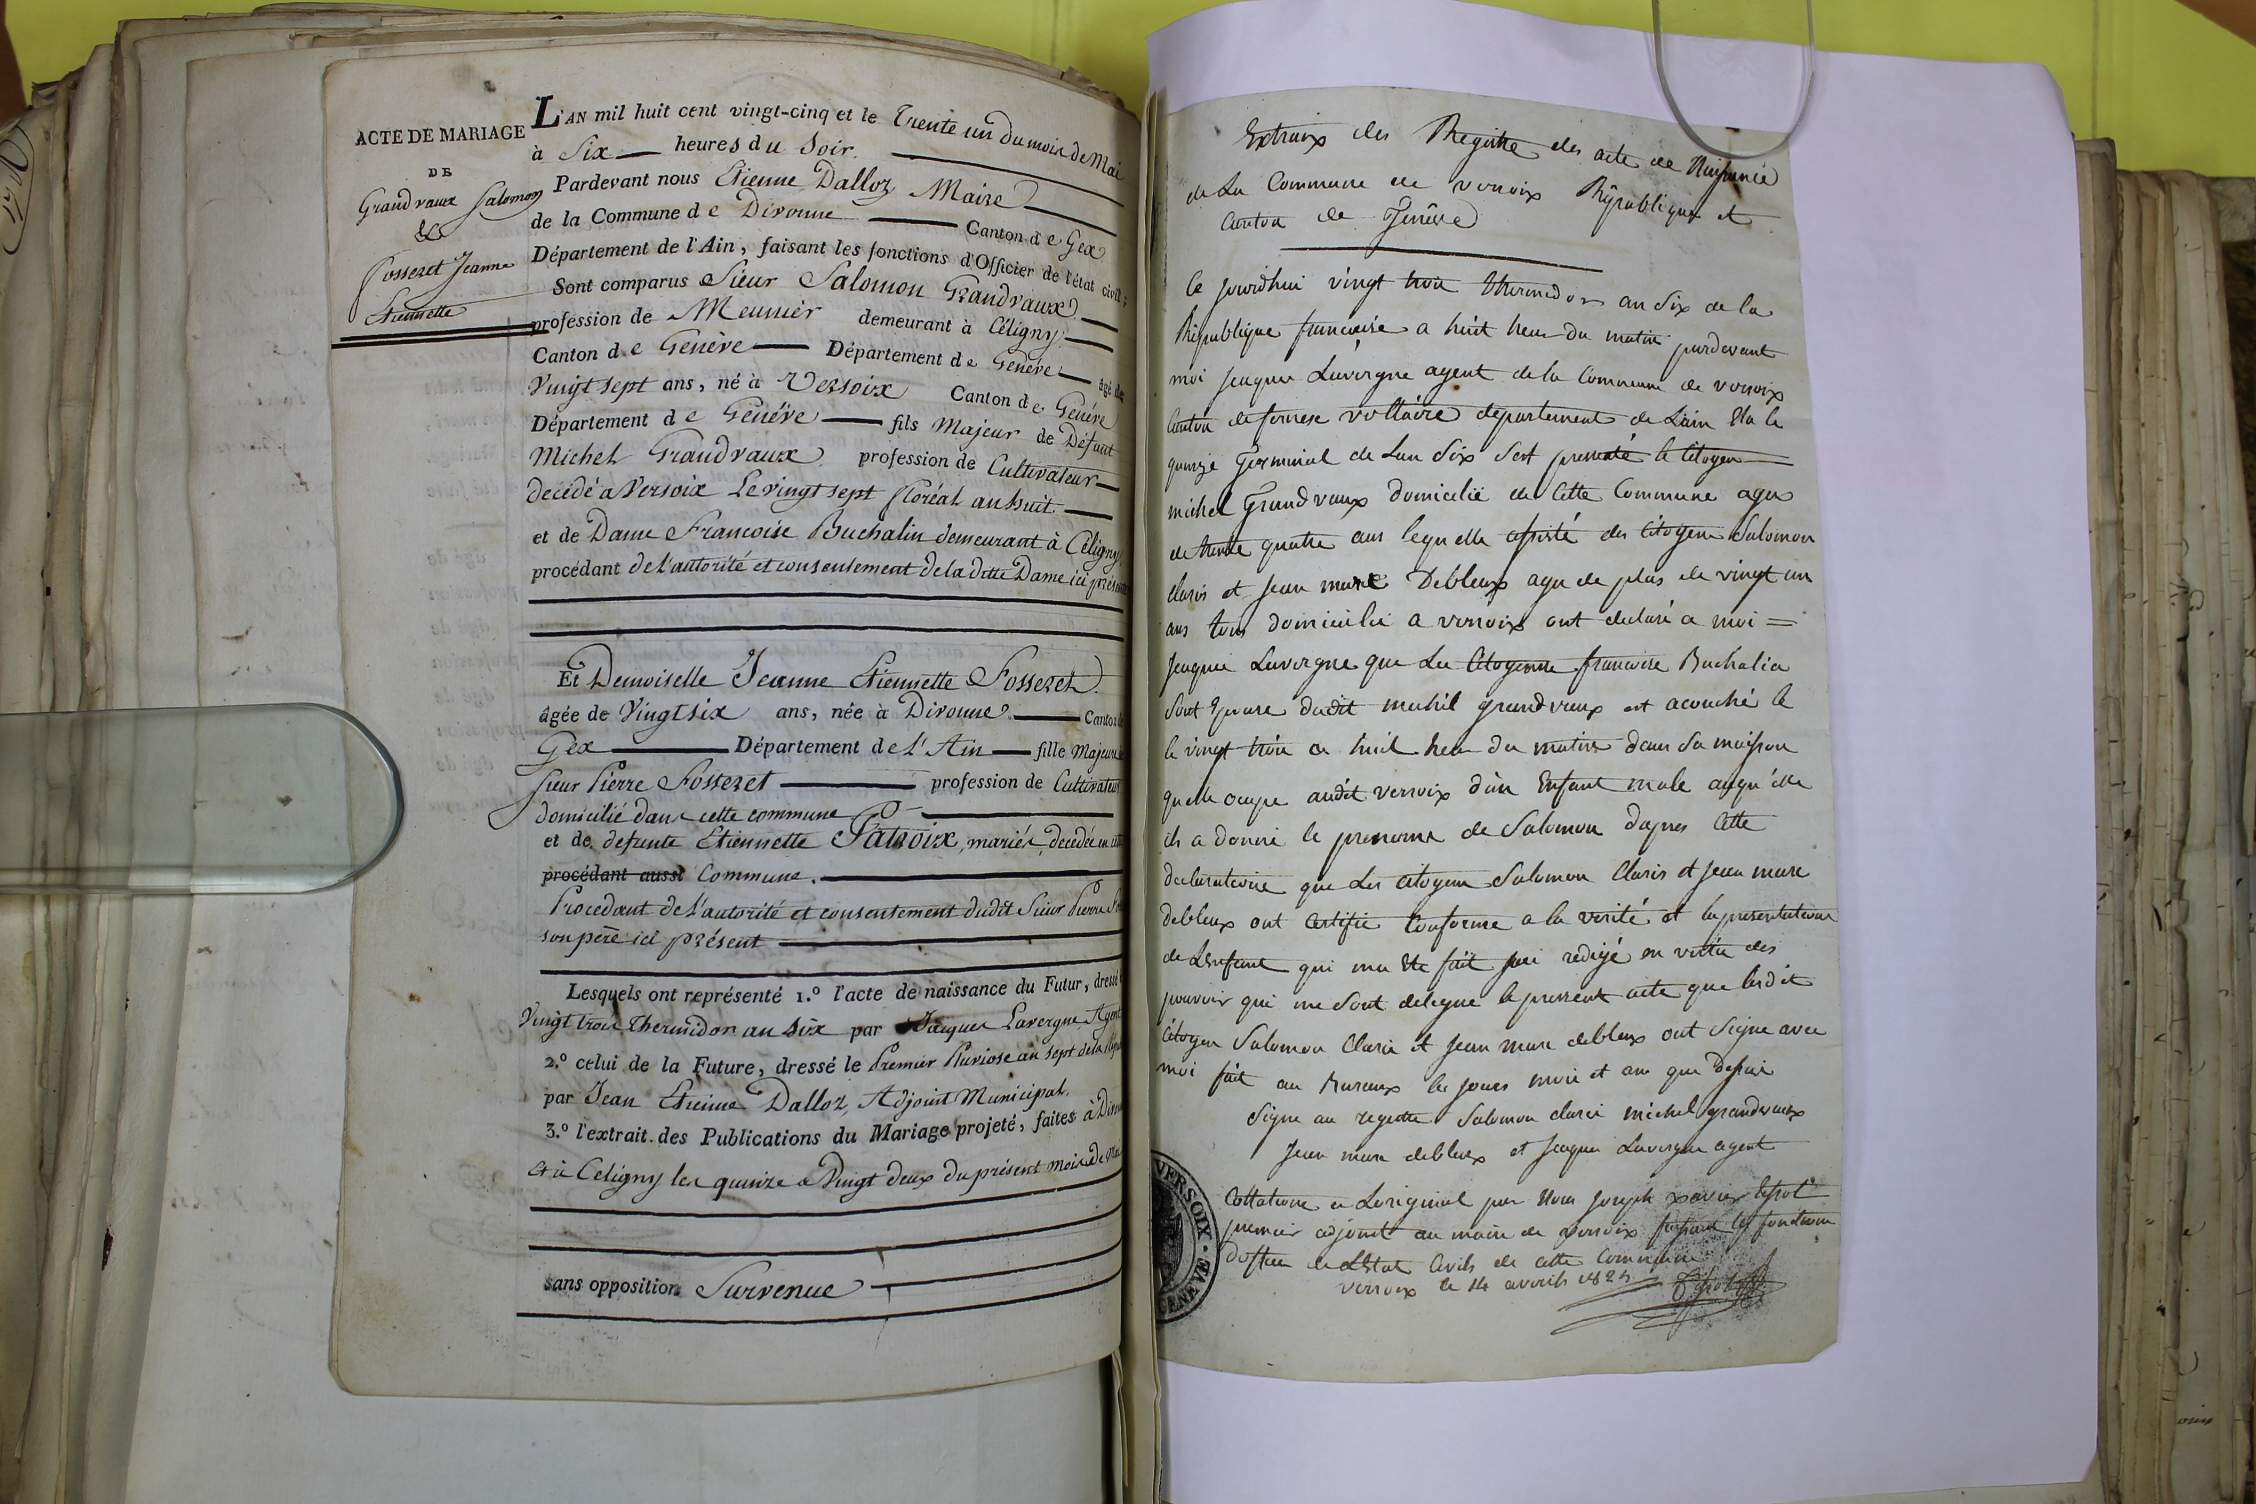 ACTE DE MARIAGE
DE
Grandvaux Salomon
&
Fosseret Jeanne
Etiennette
L'AN mil huit cent vingt-cinq et le Trente un du mois de Mai
à Six heures du Soir.
Pardevant nous Etienne Dalloz Maire
de la Commune de Divonne Canton de Gex
Département de l'Ain, faisant les fonctions d'Officier de l'état civil;
Sont comparus Sieur Salomon Grandvaux
profession de Meunier demeurant à Céligny
Canton de Genève Département de Genève âgé de
Vingt sept ans, né à Versoix Canton de Genève
Département de Genève fils Majeur de Défunt
Michel Grandvaux profession de Cultivateur
décédé à Versoix Le vingt sept floréal an huit
et de Dame Francoise Buchalin demeurant à Céligny,
procédant de l'autorité et consentement de la ditte Dame ici présente
Et Demoiselle Jeanne Etiennette Fosseret.
âgée de Vingt six ans, née à Divonne Canton de
Gex Département de l'Ain fille Majeure
sieur Pierre Fosseret profession de Cultivateur
domicilié dans cette commune
et de defunte Etiennette Patroix, mariés, decedée en cette
procédant aussi Commune.
Procedant de l'autorité et consentement dudit Sieur Pierre
son père ici présent
Lesquels ont représenté 1.º l'acte de naissance du Futur, dressé
Vingt trois Thermidor an Six par Jacques Lavergne Agent
2.º celui de la Future, dressé le Premier Pluviose an sept de la
par Jean Etienne Dalloz, Adjoint Municipal.
3.º l'extrait des Publications du Mariage projeté, faites à
et à Céligny les quinze & Vingt deux du présent mois de Mai
sans opposition Survenue
Extraix des Registre des acte de
de La Commune de versoix Républiques et
Canton de Genêve
Ce jourdhui vingt trois thermidor an Six de la
République francaise a huit heur du matin pardevant
moi jacques Lavergne agent de la Commune de versoix
Canton de fernexe voltaire département de Lain Ela le
quinze Germinal de Lan Six Sest presenté le Citoyen
michel Grandvaux domicilié de Cette Commune agée
de trente quatre ans lequelle assisté des Citoyens Salomon
claris et Jean marc Debleux agee de plus de vingt un
ans tous domicilié a versoix ont declaré a moi =
Jacques Lavergne que La Citoyenne francoise Buchalin
Sont Epouse dudit michel grandvaux est acouché le
le vingt trois a huit heur du matin dans Sa maison
quelle ocupe audit versoix d'un Enfant male auqu'elle
ils a donné le prenome de Salomon dapres Cette
declaratoire que Les Citoyen Salomon Claris et Jean marc
debleux ont Certifié Conforme a la verité et la presentation
de Lenfant qui ma Ete fait jai redigé en vertu des
pouvoir qui me Sont delegue le present acte que lesdit
Citoyen Salomon Claris et Jean marc debleux ont Signe avec
moi fait au Bureaux les jours mois et an que dessus
Signe au registre Salomon claris michel grandvaux
Jean marc debleux et Jacques Lavergne agent
Collationé a Loriginal par Nous Joseph xavier
premier adjoint au maire de versoix faisant les fonctions
de LEtat Civils de cette Commune
versoix le 14 avrils 1825
VERSOIX · GENEVE